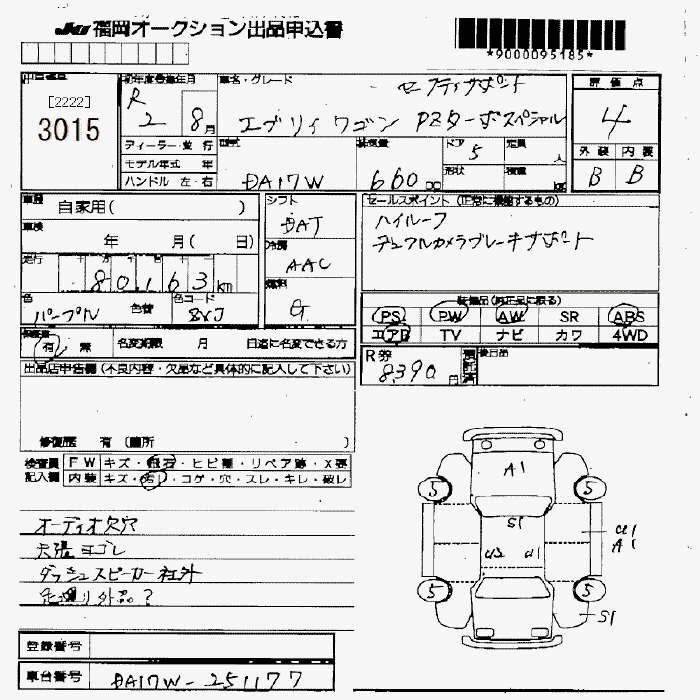 JU 福岡オークション出品申込書
*9000095185*
[2222]
3015
初年度登録年月
R 2 8月
車名・グレード
セーフティサポート
エブリイワゴン PZターボスペシャル
評価点
4
外装 内装
B B
ディーラー・並行
モデル年式 年
ハンドル 左・右
型式
DA17W
排気量
660 cc
ドア 5
定員 人
形状
積量
車歴 自家用( )
車検 年 月( 日)
走行 80,163 km
色 パープル
色替
色コード
シフト DAT
冷房 AAC
燃料 G
セールスポイント (正常に機能するもの)
ハイルーフ
デュアルカメラブレーキサポート
装備品(純正品に限る)
PS PW AW SR ABS
エアB TV ナビ カワ 4WD
有 無 名変期限 月 日迄に名変できる方
R券 8390円
預託済
後日品
出品店申告欄(不良内容・欠品など具体的に記入して下さい)
修復歴 有 (箇所 )
検査員記入欄
FW キズ・飛石・ヒビ割・リペア跡・X要
内装 キズ・汚れ・コゲ・穴・スレ・キレ・破レ
オーディオ欠穴
天張ヨゴレ
ダッシュスピーカー社外
A1
5 5
S1
U1
A1
U2 U1
5 5
S1
登録番号
車台番号 DA17W-251177